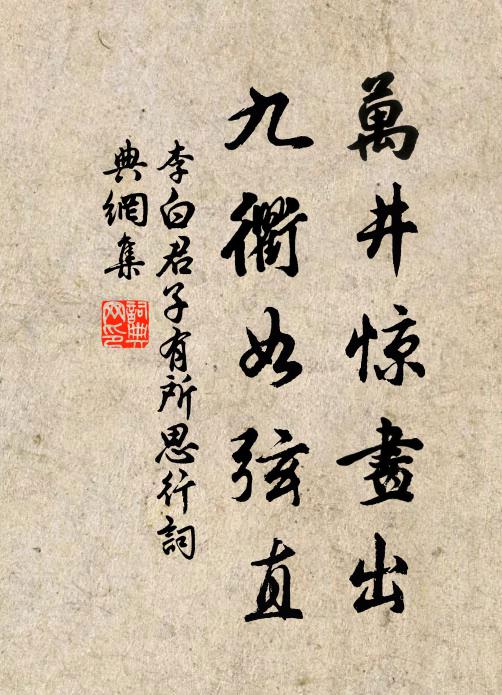 萬井惊畫出
九衢如弦直
李白君子有所思行詞
典網集
詞典
网印